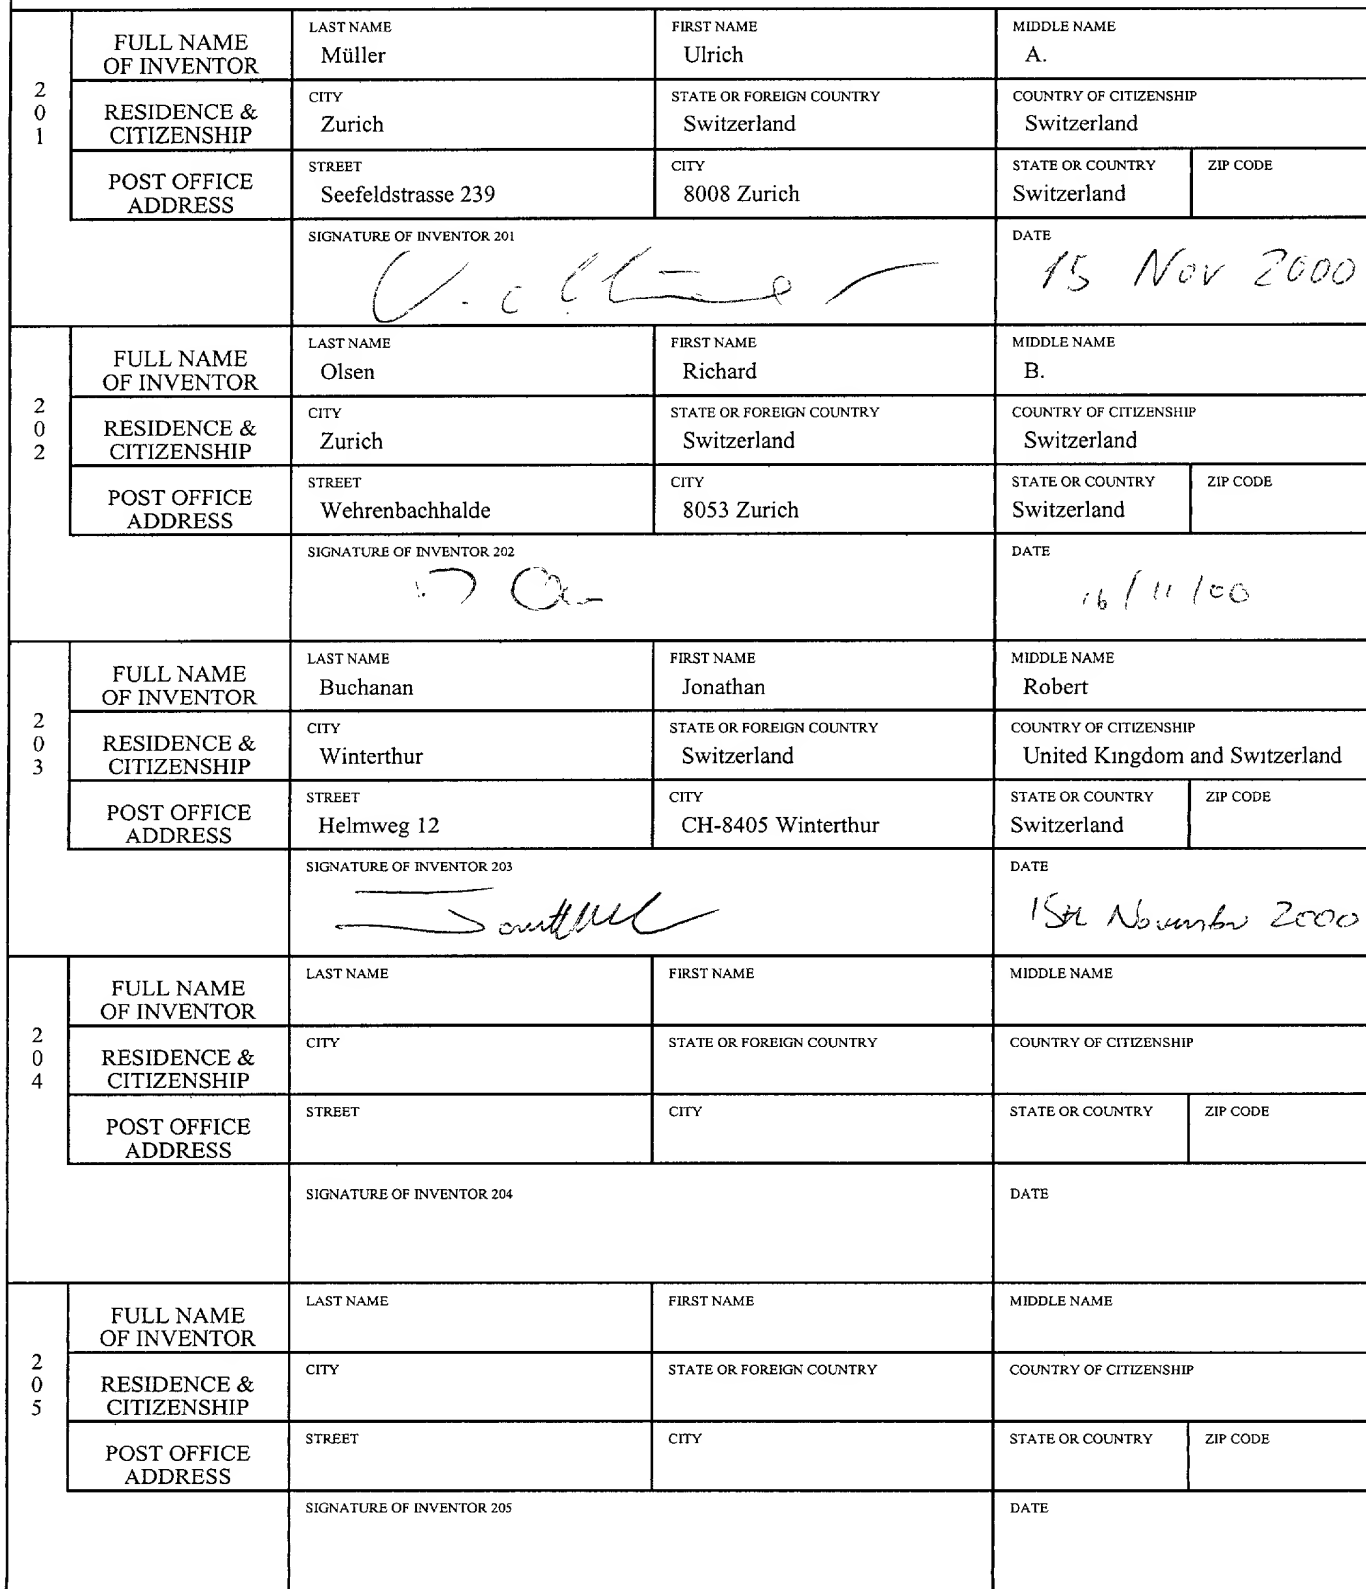 201
FULL NAME OF INVENTOR
LAST NAME
Müller
FIRST NAME
Ulrich
MIDDLE NAME
A.
RESIDENCE & CITIZENSHIP
CITY
Zurich
STATE OR FOREIGN COUNTRY
Switzerland
COUNTRY OF CITIZENSHIP
Switzerland
POST OFFICE ADDRESS
STREET
Seefeldstrasse 239
CITY
8008 Zurich
STATE OR COUNTRY
Switzerland
ZIP CODE
SIGNATURE OF INVENTOR 201
DATE
15 Nov 2000
202
FULL NAME OF INVENTOR
LAST NAME
Olsen
FIRST NAME
Richard
MIDDLE NAME
B.
RESIDENCE & CITIZENSHIP
CITY
Zurich
STATE OR FOREIGN COUNTRY
Switzerland
COUNTRY OF CITIZENSHIP
Switzerland
POST OFFICE ADDRESS
STREET
Wehrenbachhalde
CITY
8053 Zurich
STATE OR COUNTRY
Switzerland
ZIP CODE
SIGNATURE OF INVENTOR 202
DATE
16/11/00
203
FULL NAME OF INVENTOR
LAST NAME
Buchanan
FIRST NAME
Jonathan
MIDDLE NAME
Robert
RESIDENCE & CITIZENSHIP
CITY
Winterthur
STATE OR FOREIGN COUNTRY
Switzerland
COUNTRY OF CITIZENSHIP
United Kingdom and Switzerland
POST OFFICE ADDRESS
STREET
Helmweg 12
CITY
CH-8405 Winterthur
STATE OR COUNTRY
Switzerland
ZIP CODE
SIGNATURE OF INVENTOR 203
DATE
15th November 2000
204
FULL NAME OF INVENTOR
LAST NAME
FIRST NAME
MIDDLE NAME
RESIDENCE & CITIZENSHIP
CITY
STATE OR FOREIGN COUNTRY
COUNTRY OF CITIZENSHIP
POST OFFICE ADDRESS
STREET
CITY
STATE OR COUNTRY
ZIP CODE
SIGNATURE OF INVENTOR 204
DATE
205
FULL NAME OF INVENTOR
LAST NAME
FIRST NAME
MIDDLE NAME
RESIDENCE & CITIZENSHIP
CITY
STATE OR FOREIGN COUNTRY
COUNTRY OF CITIZENSHIP
POST OFFICE ADDRESS
STREET
CITY
STATE OR COUNTRY
ZIP CODE
SIGNATURE OF INVENTOR 205
DATE